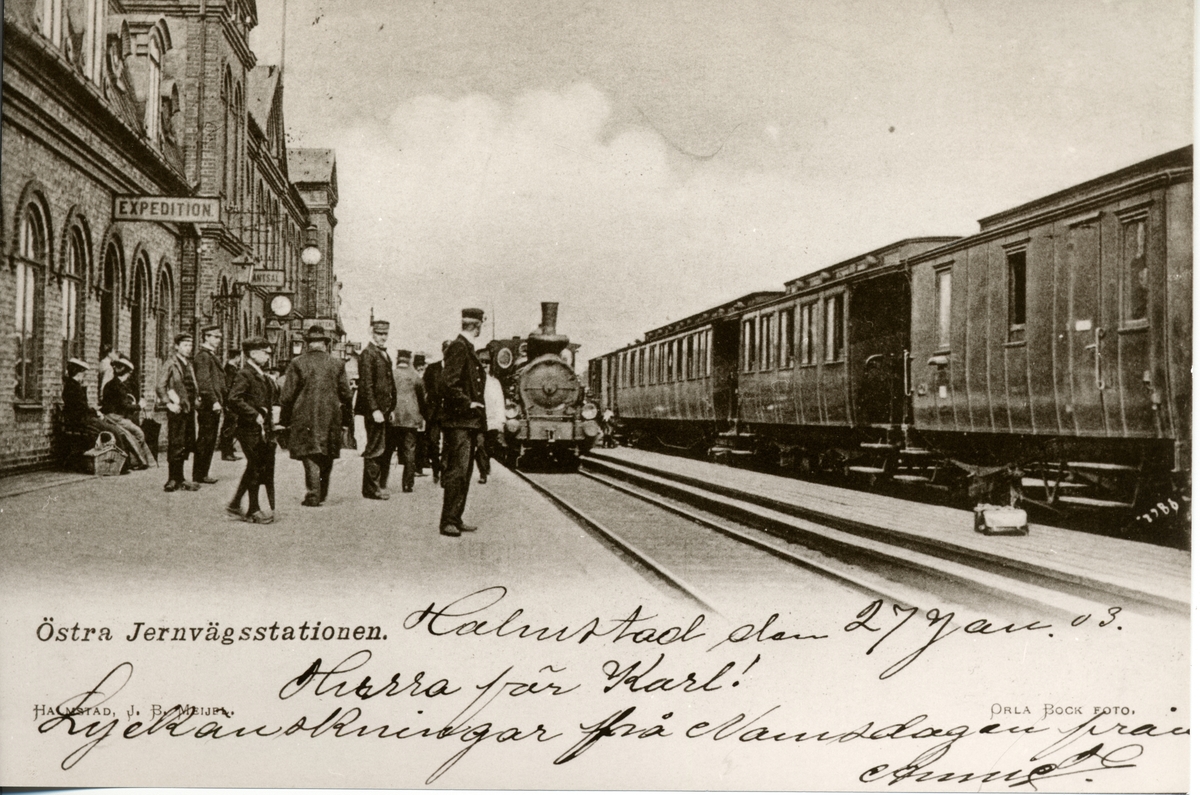 EXPEDITION.
NTSAL
Östra Jernvägsstationen. Halmstad den 27 Jan. 03.
Hurra för Karl!
HALMSTAD, J. B. MEIJEL. ORLA BOCK FOTO.
Lyckönskningar på Namsdagen från